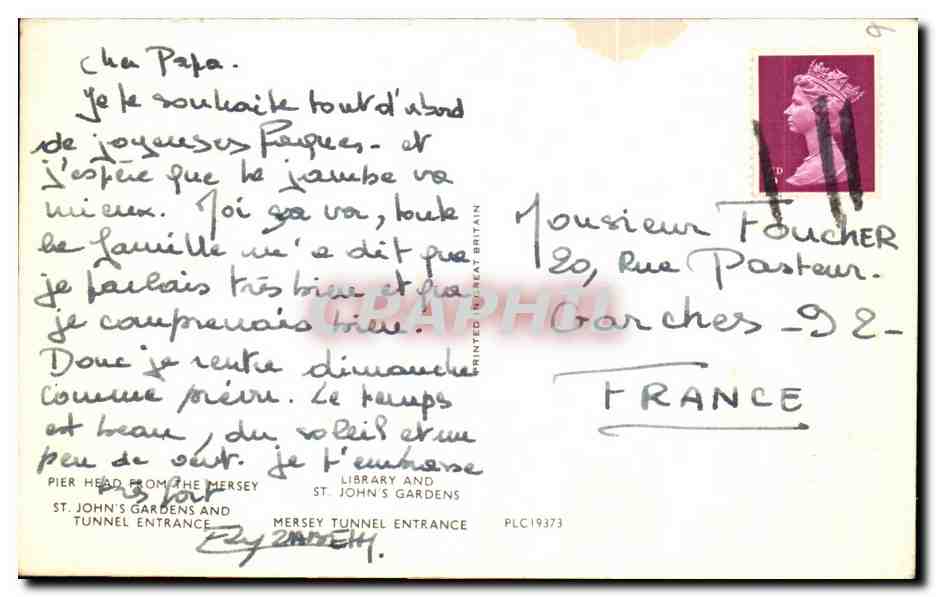 Cher Papa.
Je te souhaite tout d'abord
de joyeuses Paques - et
j'espère que ta jambe va
mieux. Moi ça va, toute
la famille m'a dit que
je parlais très bien et que
je comprenais bien!
Donc je rentre dimanche
comme prévu. Le temps
est beau, du soleil et un
peu de vent. je t'embrasse
très fort
Elyzabeth.
PIER HEAD FROM THE MERSEY
LIBRARY AND
ST. JOHN'S GARDENS
ST. JOHN'S GARDENS AND
TUNNEL ENTRANCE
MERSEY TUNNEL ENTRANCE
PLC19373
PRINTED IN GREAT BRITAIN
CPAPHIL
Monsieur FOUCHER
20, Rue Pasteur.
Garches - 92 -
FRANCE